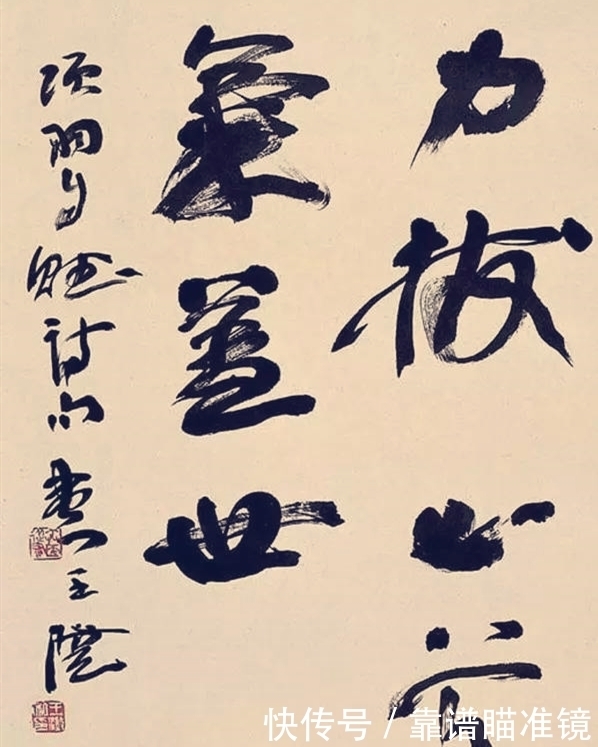 力拔山兮
氣蓋世
項羽自賦詩 王
快传号 / 靠谱瞄准镜